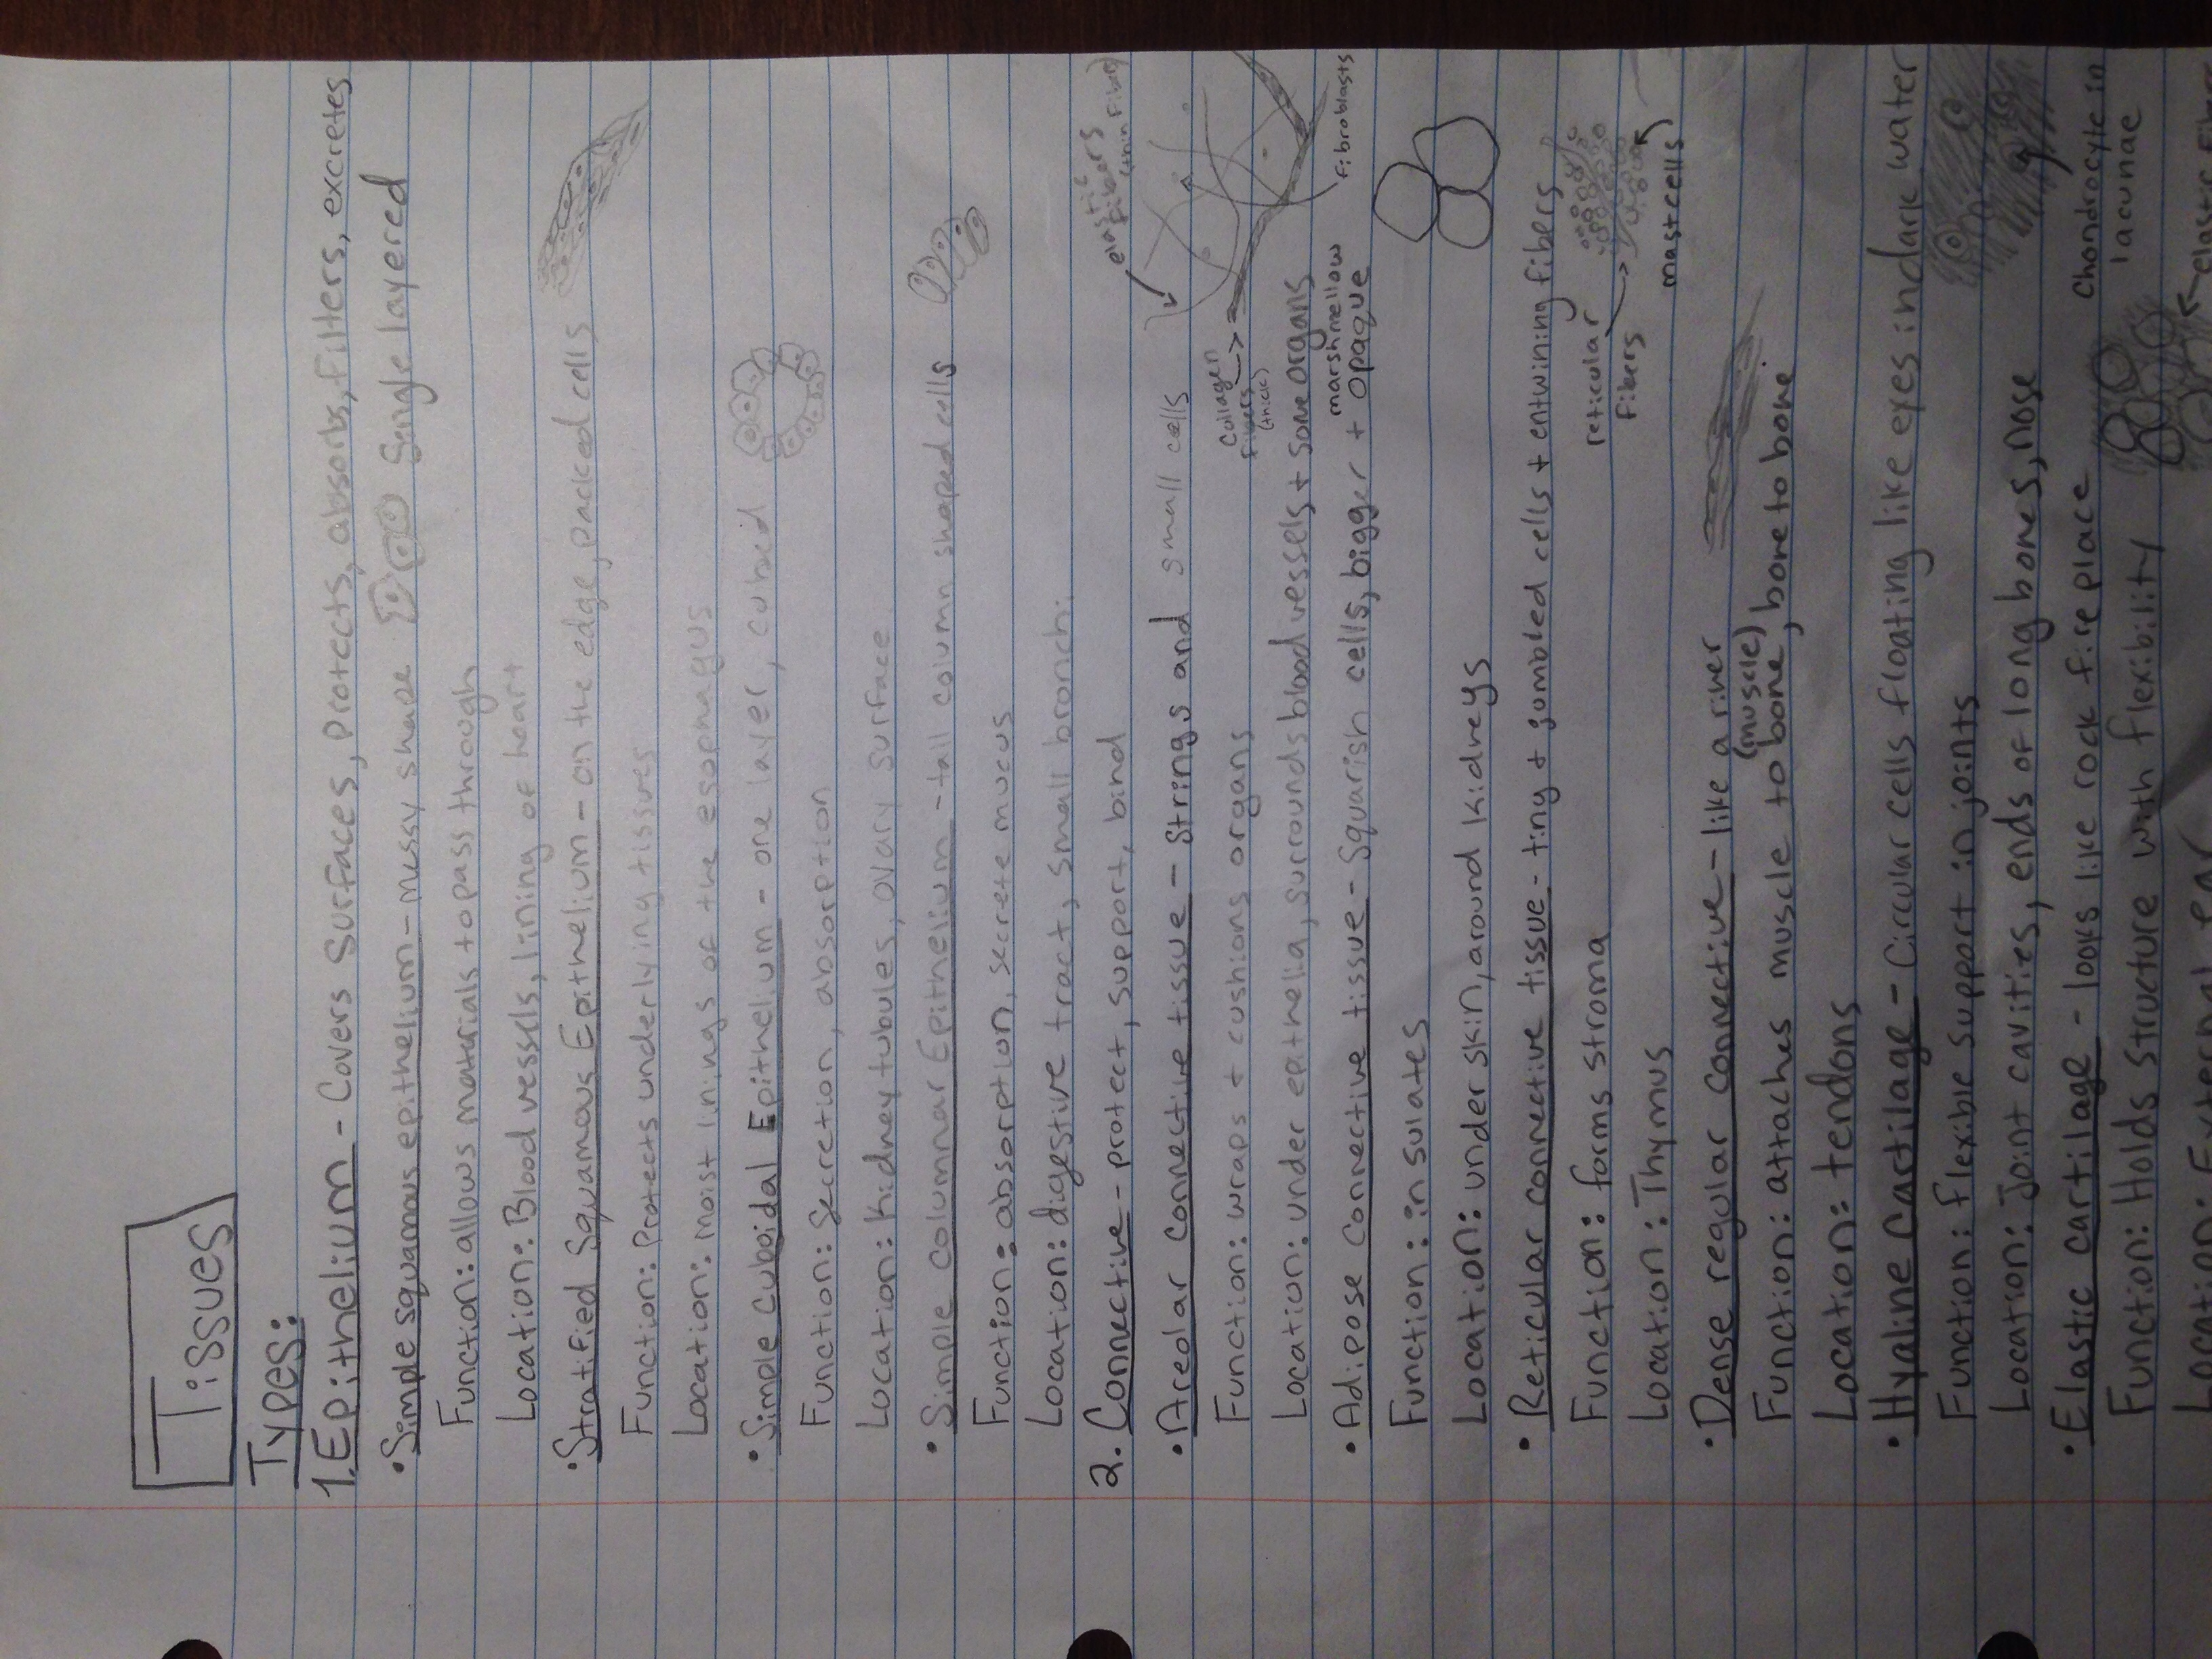 Tissues
Types:
1. Epithelium - Covers surfaces, protects, absorbs, filters, excretes
• Simple squamous epithelium - messy shape Single layered
Function: allows materials to pass through
Location: Blood vessels, lining of heart
• Stratified Squamous Epithelium - on the edge, packed cells
Function: Protects underlying tissues
Location: moist linings of the esophagus
• Simple Cuboidal Epithelium - one layer, cuboid
Function: Secretion, absorption
Location: Kidney tubules, ovary surface
• Simple columnar Epithelium - tall column shaped cells
Function: absorption, secrete mucus
Location: digestive tract, small bronchi
2. Connective - protect, support, bind
elastic fibers (thin fibers)
• Areolar connective tissue - Strings and small cells
Function: wraps + cushions organs
Collagen fibers (thick)
fibroblasts
Location: under epithelia, surrounds blood vessels + some organs
marshmellow
• Adipose Connective tissue - Squarish cells, bigger + opaque
Function: insulates
Location: under skin, around kidneys
• Reticular connective tissue - tiny + jumbled cells + entwining fibers
Function: forms stroma
reticular fibers
Location: Thymus
mast cells
• Dense regular connective - like a river
(muscle)
Function: attaches muscle to bone, bone to bone
Location: tendons
• Hyaline Cartilage - Circular cells floating like eyes in dark water
Function: flexible support in joints
Location: Joint cavities, ends of long bones, nose
Chondrocyte in lacunae
• Elastic cartilage - looks like rock fireplace
Function: Holds structure with flexibility
Location: External ear
elastic